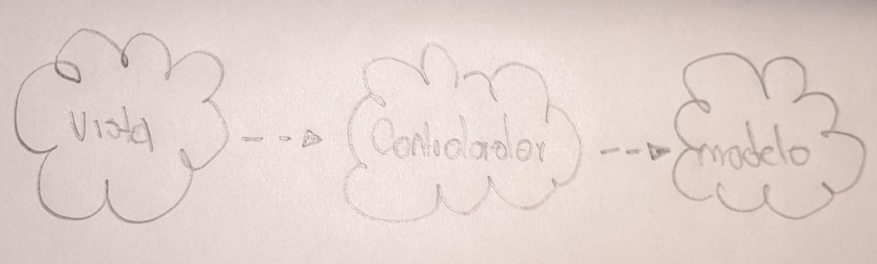 Vista
Controlador
modelo